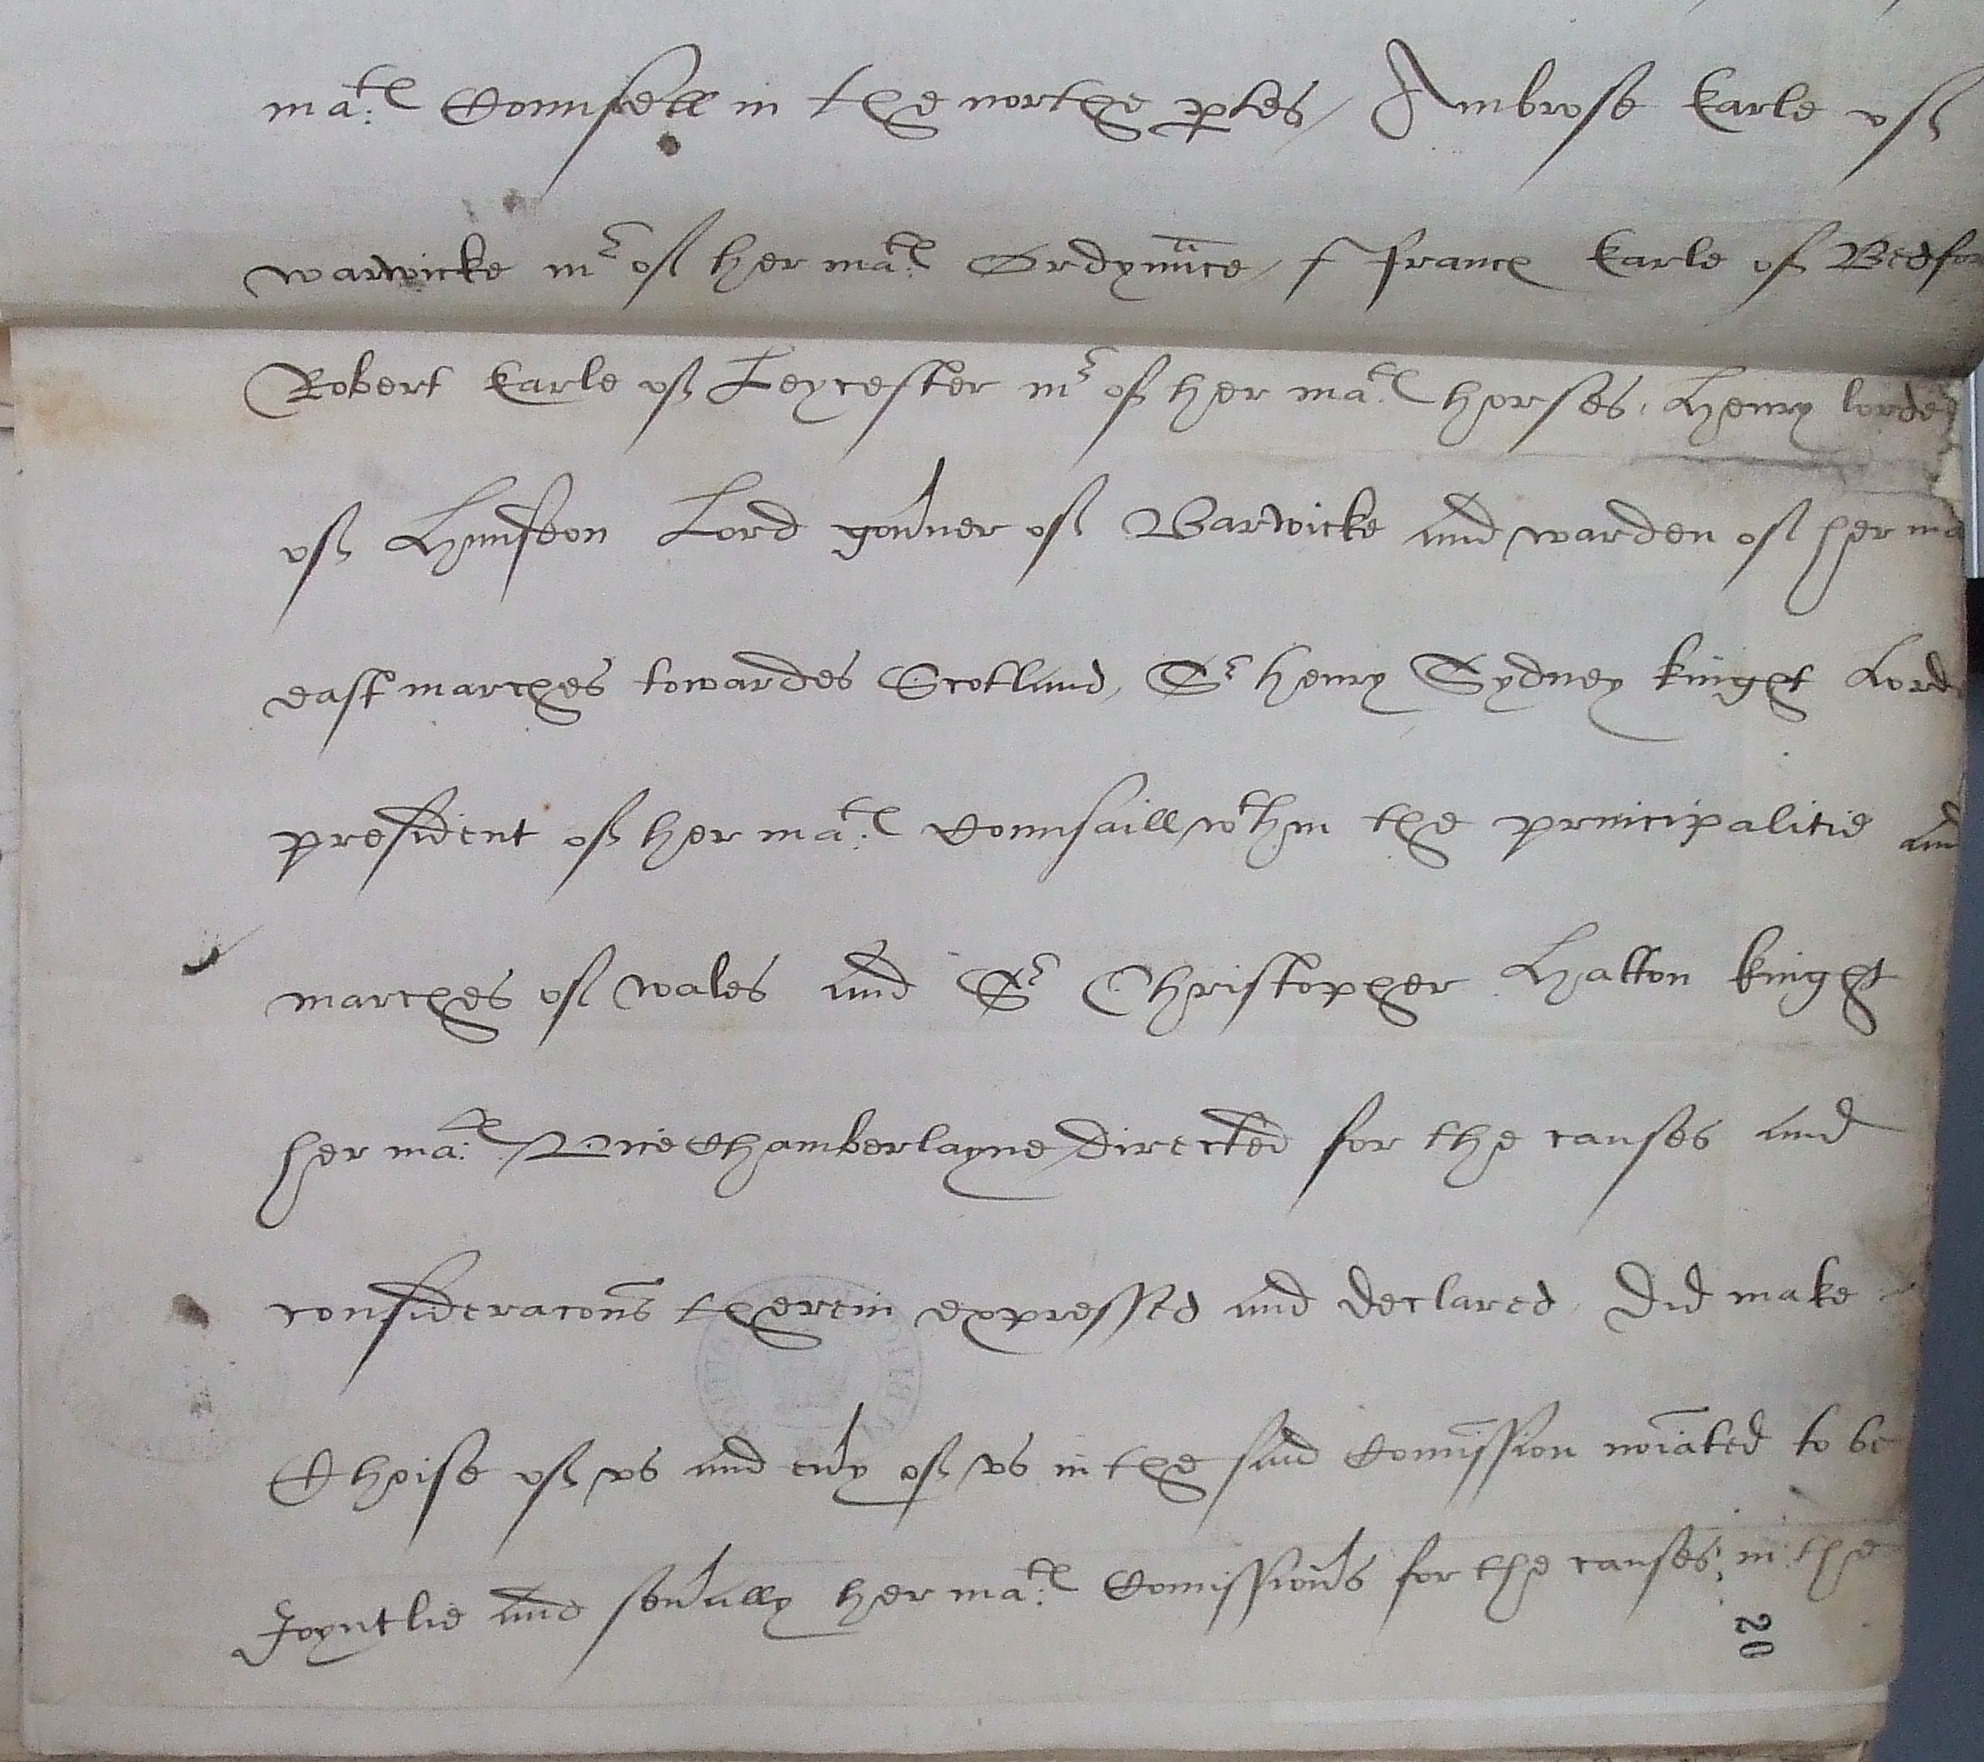 ma:tes Counsell in the northe ptes / Ambrose Earle of
warwicke mr of her ma:tes Ordynnce / ffrancs Earle of Bedfor
Robert Earle of Leycester mr of her ma:tes horses, Henry lorde
of Hunsdon Lord gouner of Barwicke and warden of her ma
east marches towardes Scotland, Sr henry Sydney knight Lord
president of her ma:tes Counsaill wthin the principalitie and
marches of wales and Sr Christopher Hatton knight
her ma:tes Vice Chamberlayne directed for the causes and
consideracons therein expressed and declared, did make
Choise of vs and eny of vs in the said Comission noiated to be
Joyntlie and seually her ma:tes Comissions for the causes, in the
20